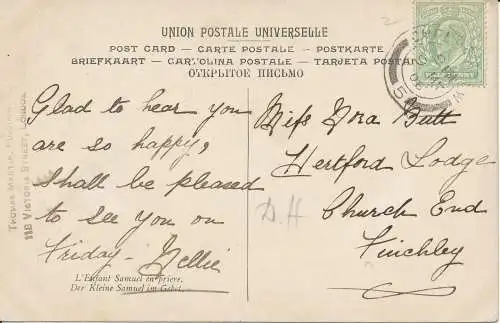 UNION POSTALE UNIVERSELLE
POST CARD — CARTE POSTALE — POSTKARTE
BRIEFKAART — CARTOLINA POSTALE — TARJETA POSTAL
ОТКРЫТОЕ ПИСЬМО
Glad to hear you
are so happy,
shall be pleased
to see you on
Friday - Nellie
Miss Nora Butt
Hertford Lodge
Church End
Finchley
D.H
L'Enfant Samuel en prière.
Der Kleine Samuel im Gebet.
THOMAS MARTIN,
118 VICTORIA STREET, LONDON